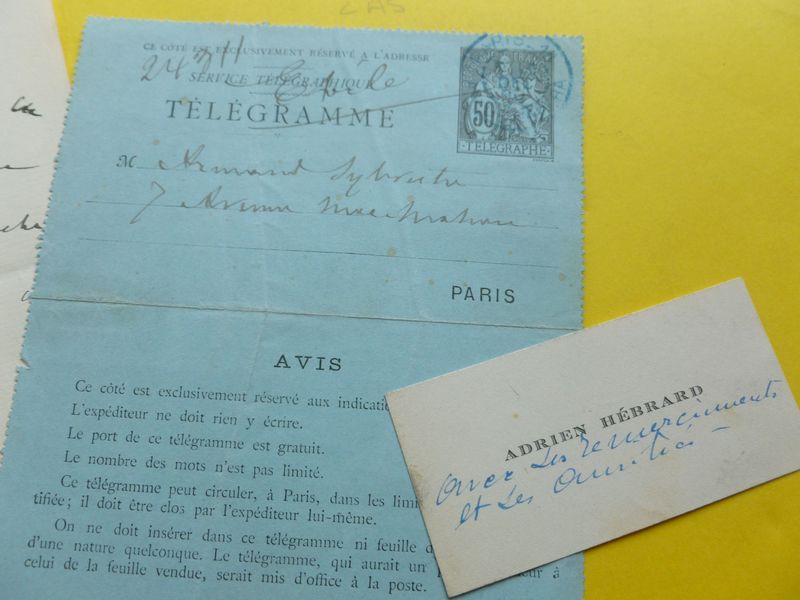 CE CÔTÉ EST EXCLUSIVEMENT RÉSERVÉ A L'ADRESSE
SERVICE TÉLÉGRAPHIQUE
TÉLÉGRAMME
50
TÉLÉGRAPHE
M Armand Sylvestre
7 Avenue Mac Mahon
PARIS
AVIS
Ce côté est exclusivement réservé aux indicatio
L'expéditeur ne doit rien y écrire.
Le port de ce télégramme est gratuit.
Le nombre des mots n'est pas limité.
Ce télégramme peut circuler, à Paris, dans les limi
tifiée; il doit être clos par l'expéditeur lui-même.
On ne doit insérer dans ce télégramme ni feuille d
d'une nature quelconque. Le télégramme, qui aurait un
à
celui de la feuille vendue, serait mis d'office à la poste.
ADRIEN HÉBRARD
avec ses remerciments
et ses amitiés